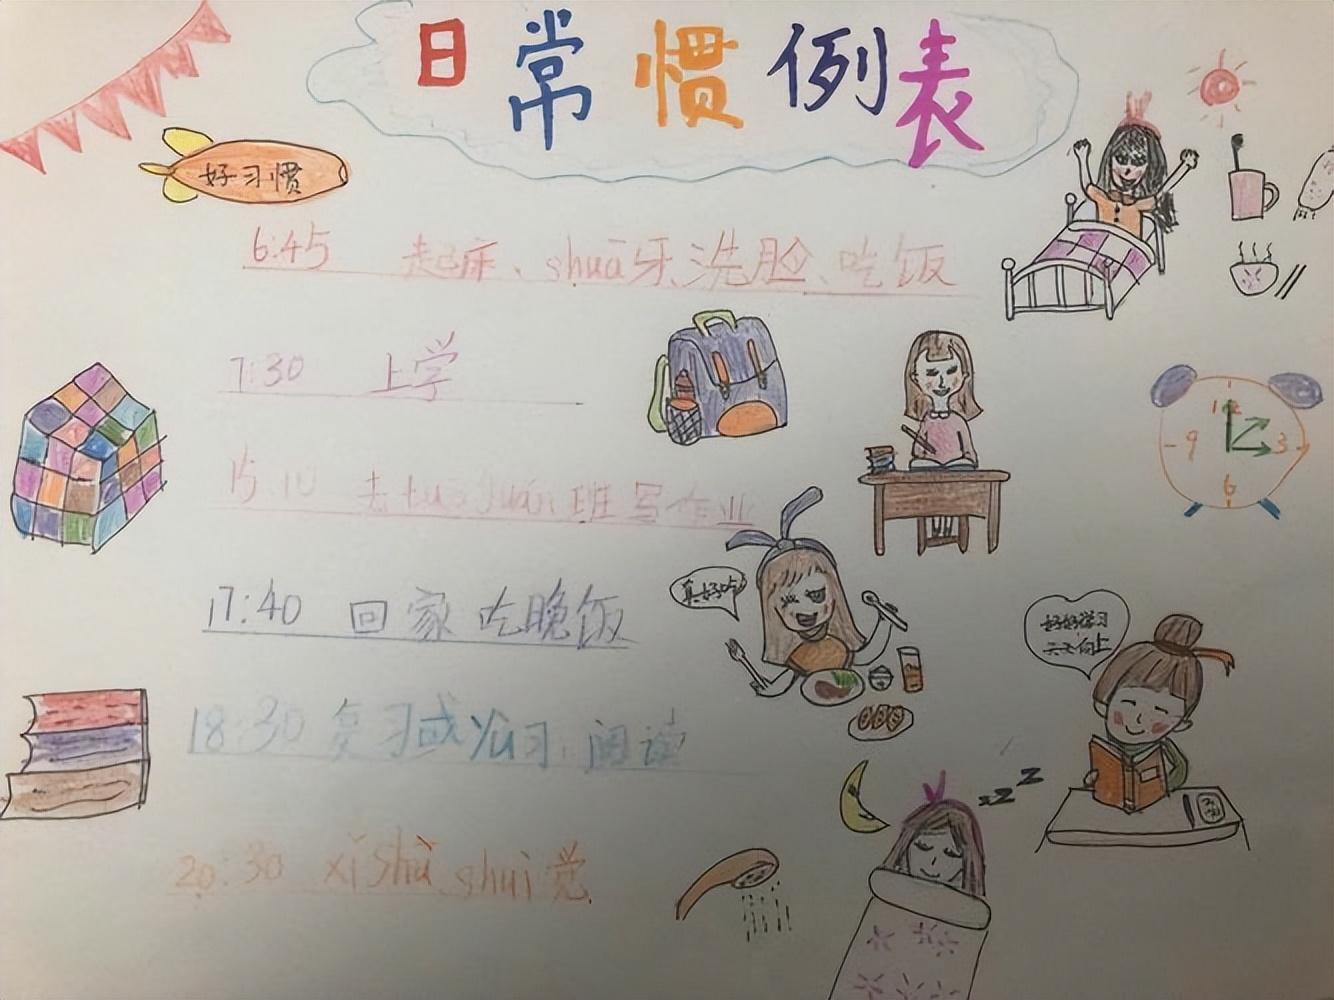 日常惯例表
好习惯
6:45 起床、shuā牙、洗脸、吃饭
7:30 上学
15:10 去tuō guǎn班写作业
17:40 回家吃晚饭
真好吃
好好学习
天天向上
12
9 3
6
18:30 复习或yù习、阅读
20:30 xǐ shù shuì觉
z z z